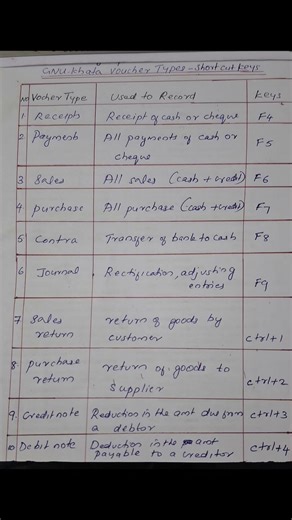 GNU Khata Voucher Types - Short cut keys
No Vocher Type Used to Record Keys
1 Receipts Receipt of cash or cheque F4
2 Payment All payments of cash or
cheque F5
3 Sales All sales (cash + credit) F6
4. purchase All purchase (cash + credit) F7
5 Contra Transfer of bank to cash F8
6 Journal Rectification, adjusting
entries F9
7 Sales return of goods by
return customer ctrl+1
8 purchase return of goods to
return Supplier ctrl+2
9. Credit note Reduction in the amt due from ctrl+3
a debtor
10 Debit note Deduction in the amt ctrl+4
payable to a creditor